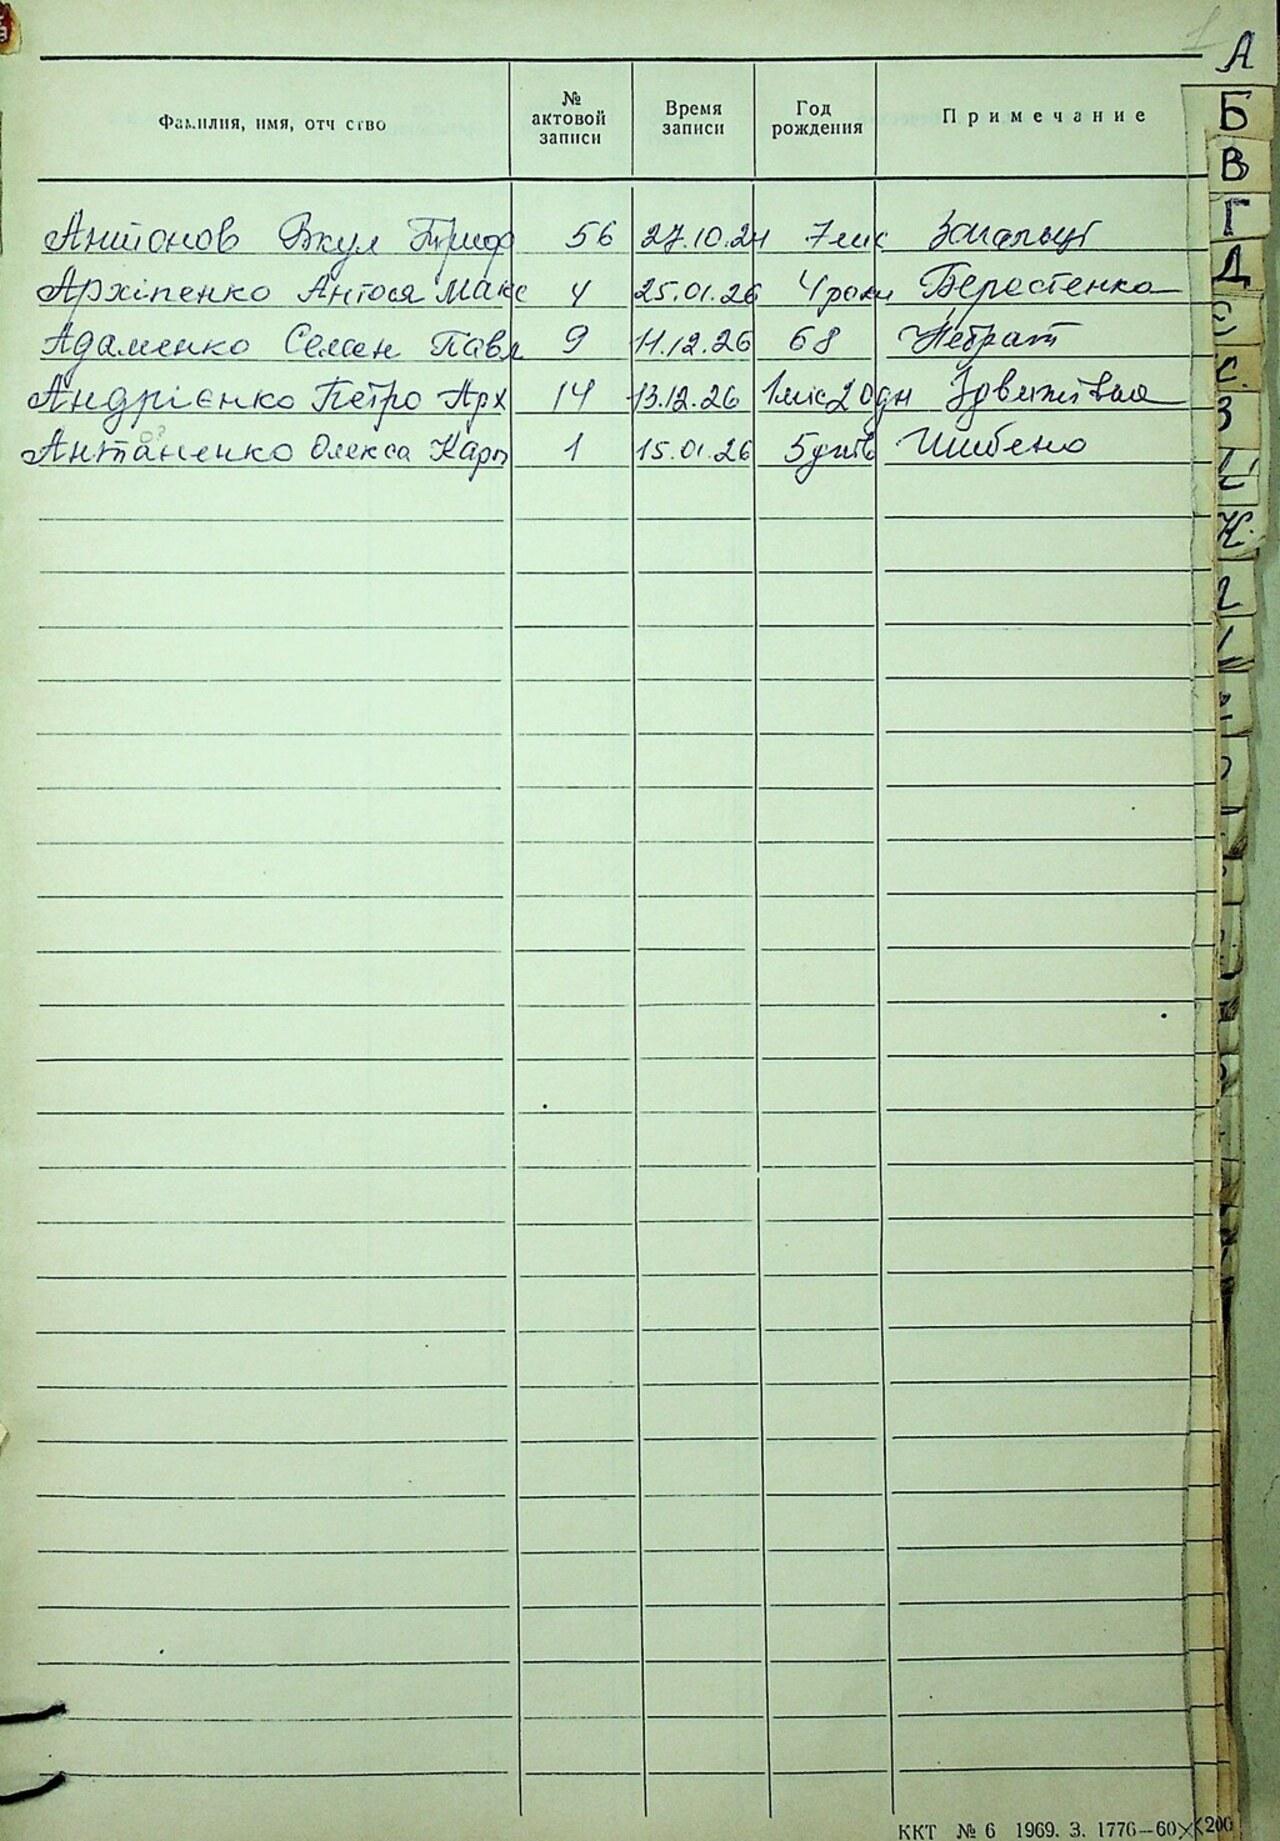 А
Фамилия, имя, отчество № актовой записи Время записи Год рождения Примечание
Антонов Вкул Триф 56 27.10.24 7 міс Загальці
Архіпенко Антося Макс 4 25.01.26 4 роки Берестенко
Адаменко Семен Павл 9 11.12.26 68 Небрат
Андрієнко Петро Арх 14 13.12.26 1 міс 20 дн Здвижівка
Антаненко Олекса Карп 1 15.01.26 5 днів Шибено
Б
В
Г
Д
З
К
ККТ № 6 1969. З. 1776—60×200